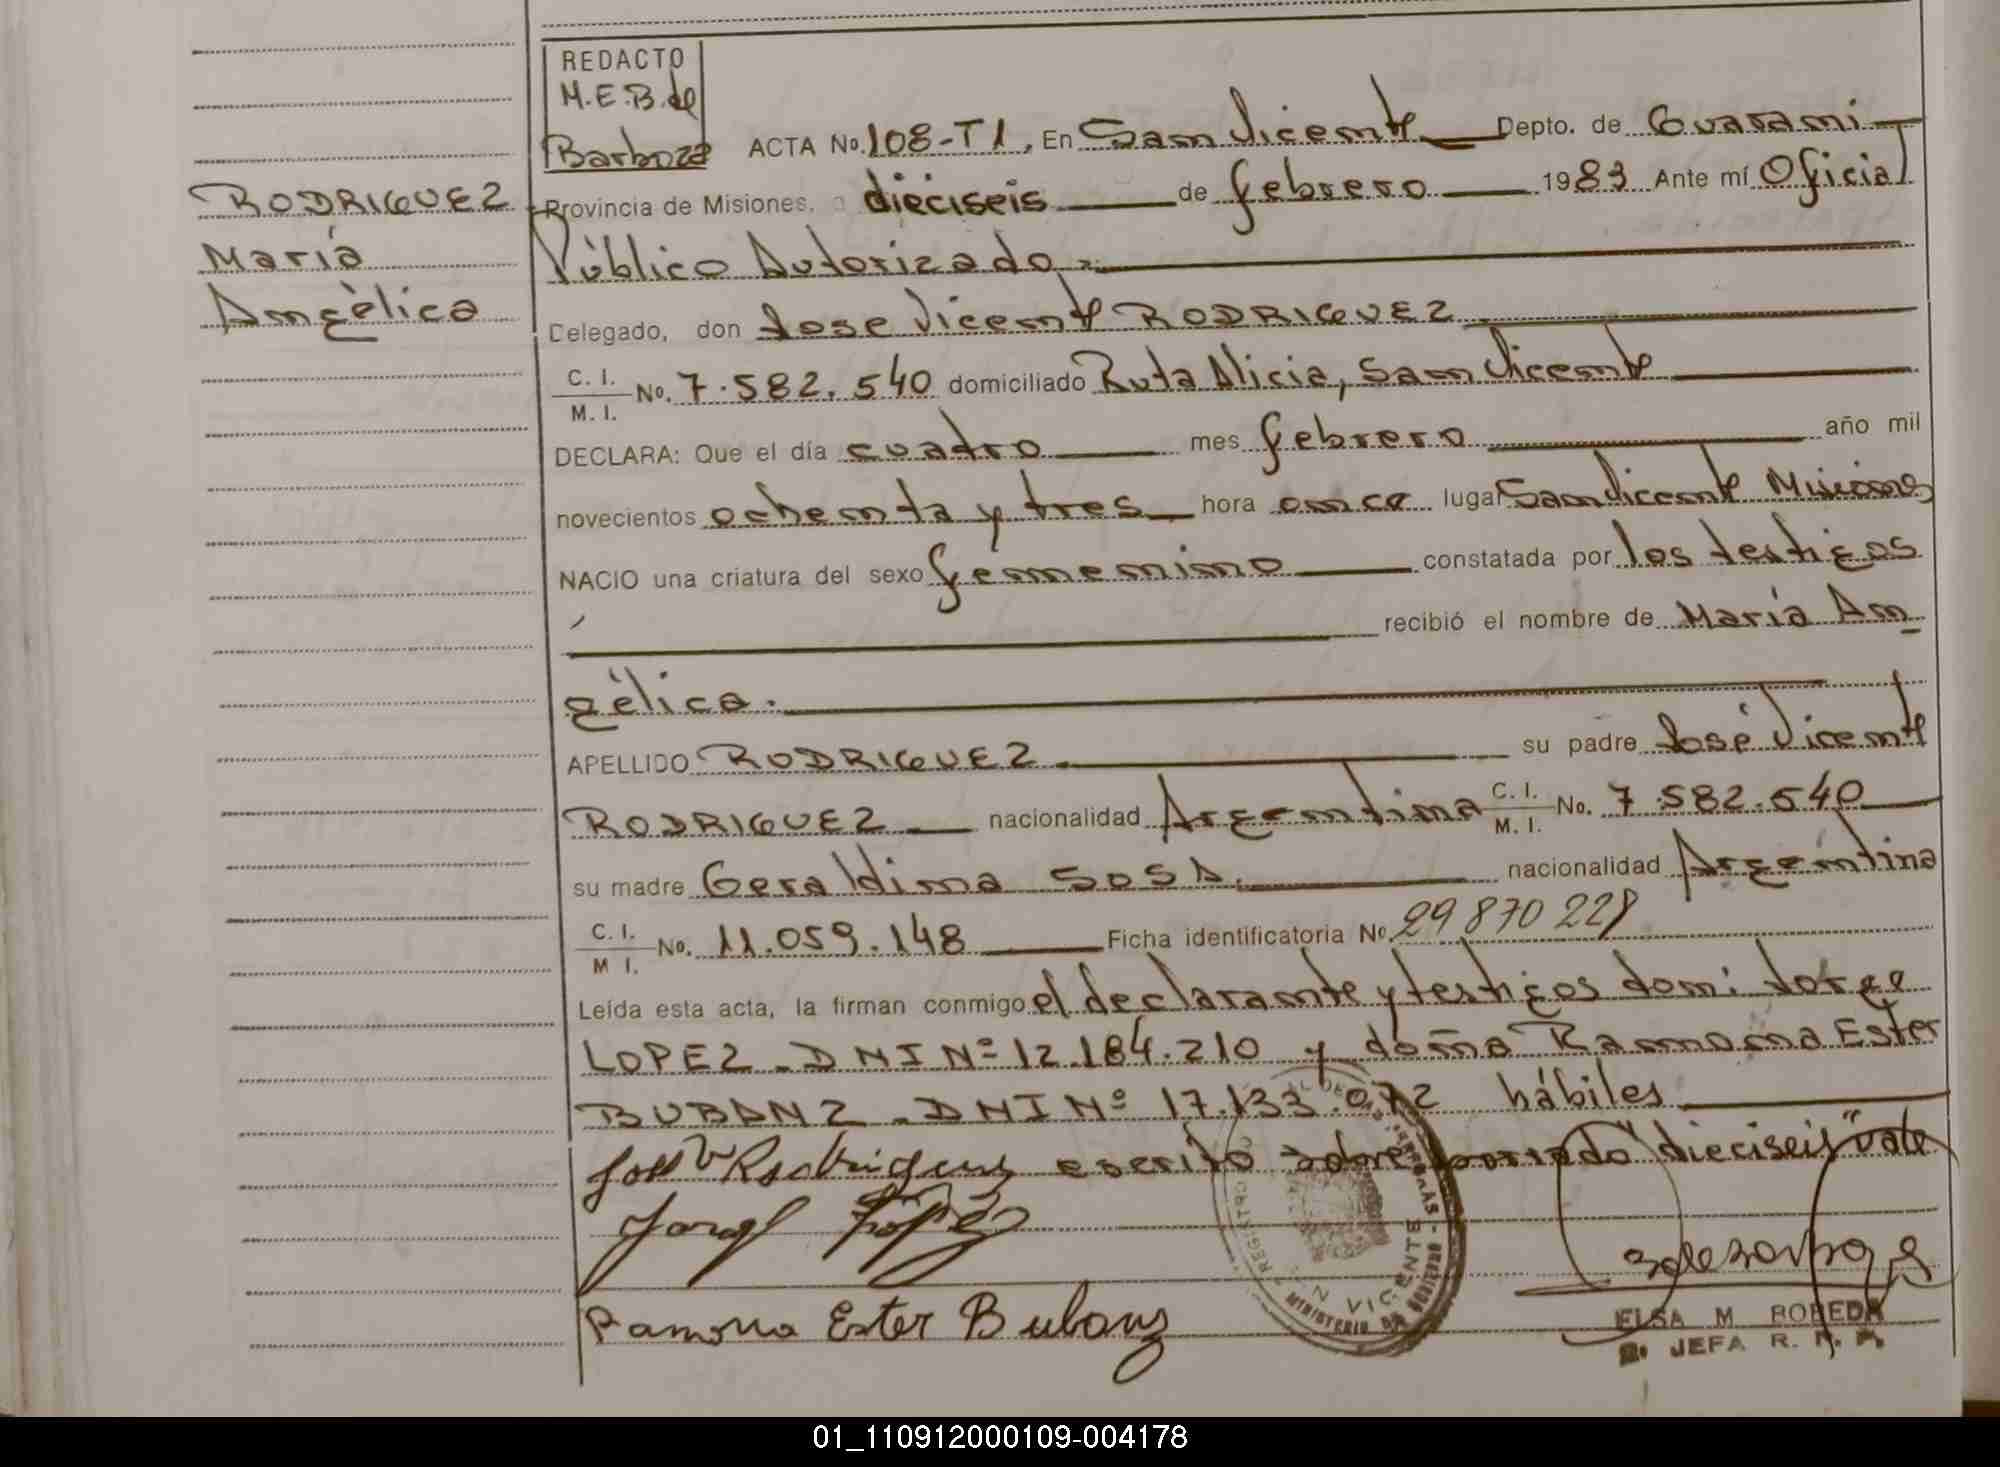 REDACTO
M.E.B. de
Barboza
ACTA No. 108-T1, En San Vicente Depto. de Guaraní
RODRIGUEZ
María
Angélica
Provincia de Misiones, a dieciseis de febrero 1983 Ante mí Oficial
Público Autorizado,
Delegado, don Jose Vicente RODRIGUEZ
C. I.
M. I. No. 7.582.540 domiciliado Ruta Alicia, San Vicente
DECLARA: Que el día cuatro mes febrero año mil
novecientos ochenta y tres hora once lugar San Vicente Misiones
NACIO una criatura del sexo femenino constatada por los testigos
recibió el nombre de María An
gélica.
APELLIDO RODRIGUEZ su padre José Vicente
RODRIGUEZ nacionalidad Argentina C. I. M. I. No. 7.582.540
su madre Geraldina SOSA. nacionalidad Argentina
C. I.
M I. No. 11.059.148 Ficha identificatoria No. 29 870 228
Leída esta acta, la firman conmigo el declarante y testigos don: Jorge
LOPEZ - DNI Nº 12.184.210 y doña Ramona Ester
BUBANZ - DNI Nº 17.133.072 hábiles
José V Rodriguez escrito sobre borrado "dieciseis" vale
Jorge López
Ramona Ester Bubanz
SAN VICENTE
MINISTERIO DE GOBIERNO
REGISTRO
ELSA M BOBEDA
JEFA R. P.
01_110912000109-004178